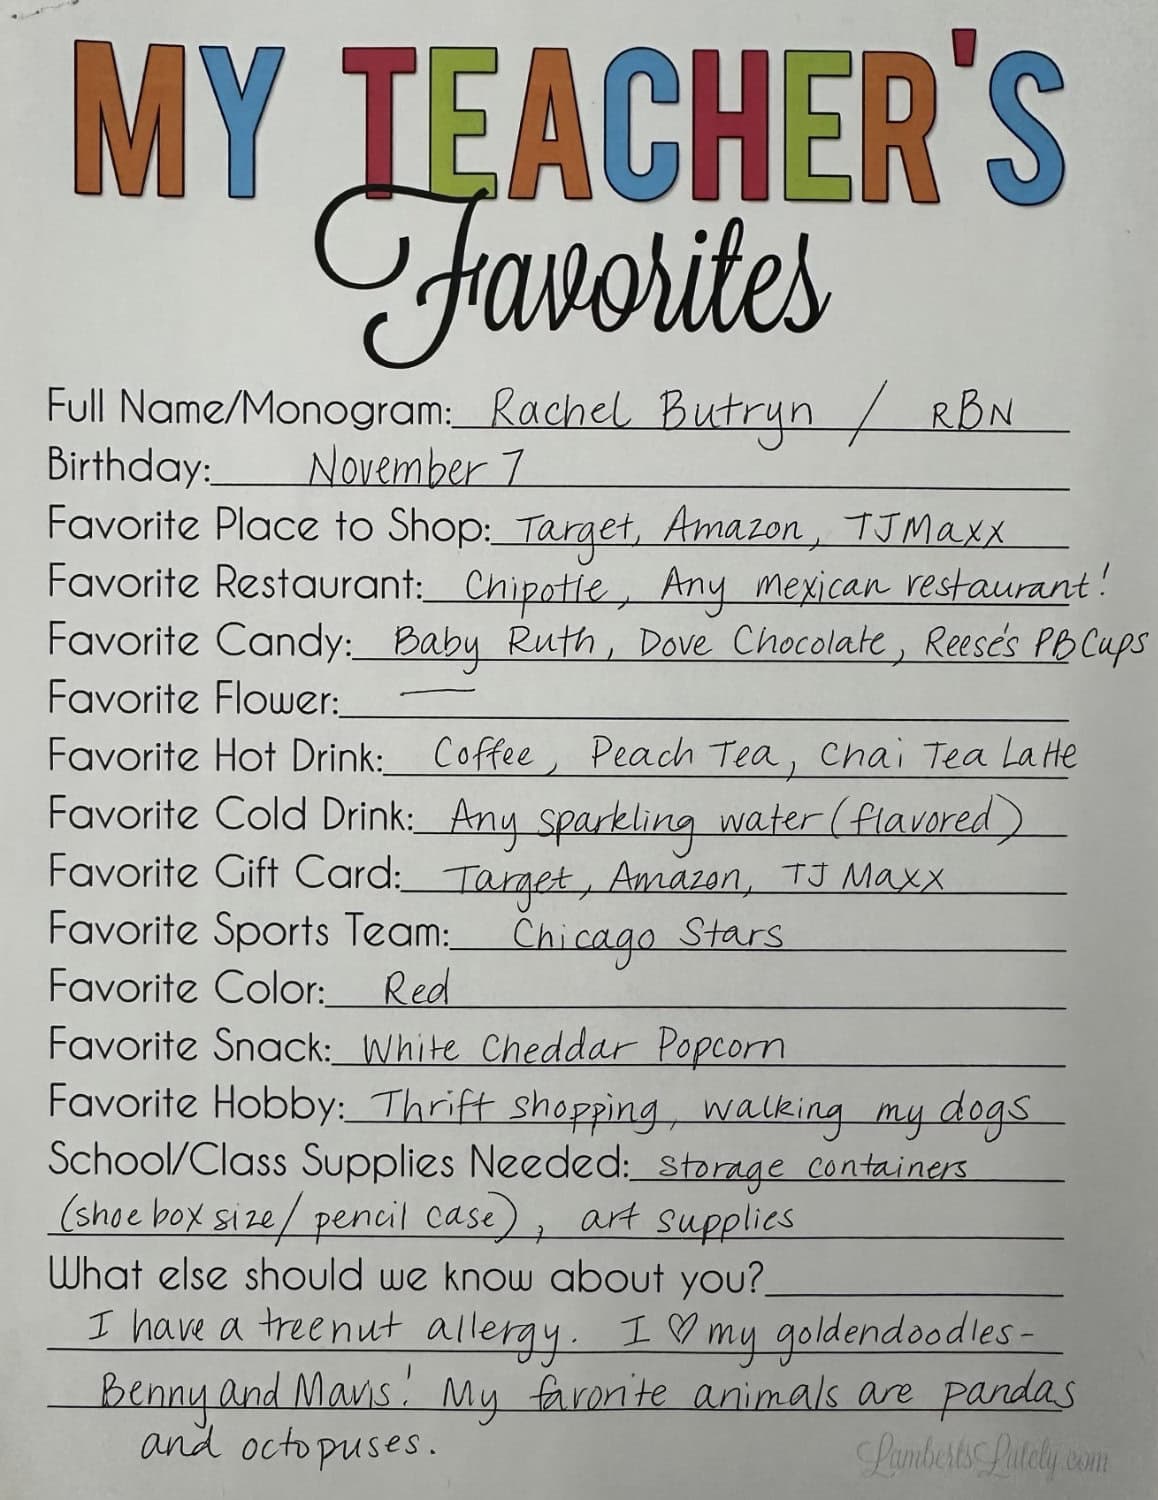 MY TEACHER'S
Favorites
Full Name/Monogram: Rachel Butryn / RBN
Birthday: November 7
Favorite Place to Shop: Target, Amazon, TJMaxx
Favorite Restaurant: Chipotle, Any mexican restaurant!
Favorite Candy: Baby Ruth, Dove Chocolate, Reese's PB Cups
Favorite Flower: —
Favorite Hot Drink: Coffee, Peach Tea, Chai Tea Latte
Favorite Cold Drink: Any sparkling water (flavored)
Favorite Gift Card: Target, Amazon, TJ Maxx
Favorite Sports Team: Chicago Stars
Favorite Color: Red
Favorite Snack: White Cheddar Popcorn
Favorite Hobby: Thrift shopping, walking my dogs
School/Class Supplies Needed: storage containers
(shoe box size/pencil case), art supplies
What else should we know about you?
I have a treenut allergy. I ♡ my goldendoodles-
Benny and Mavis! My favorite animals are pandas
and octopuses.
LambertsLately.com